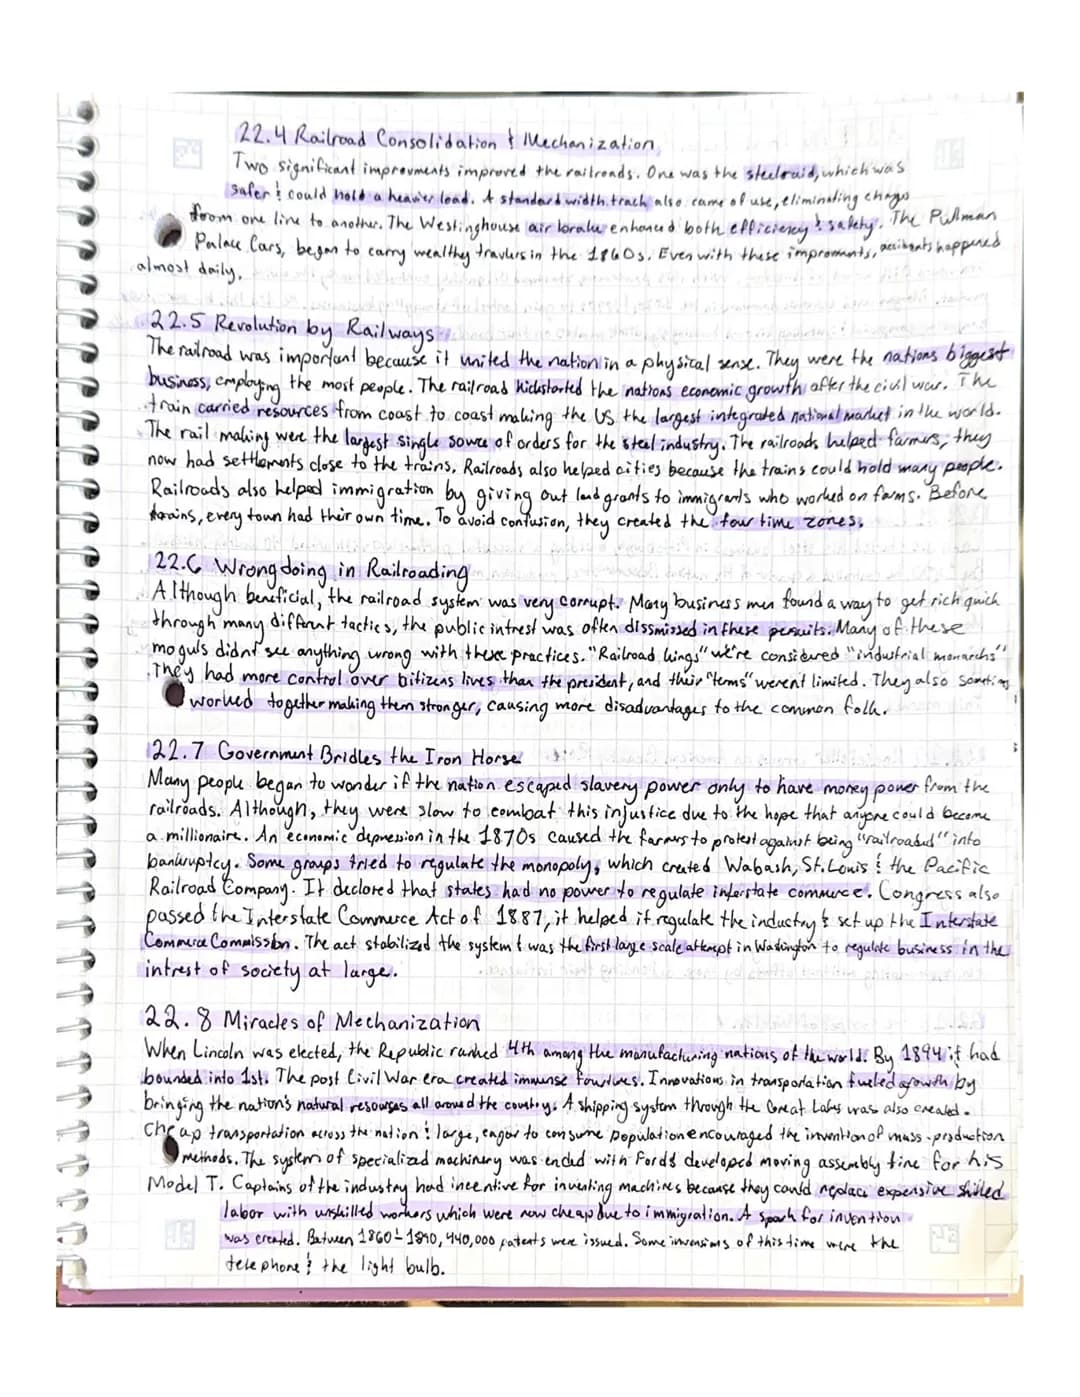 22.4 Railroad Consolidation & Mechanization
Two significant improvments improved the railroads. One was the steel raid, which was
safer & could hold a heavier load. A standard width track also came of use, eliminating chags
from one line to another. The Westinghouse air brake enhanced both efficiency & safety. The Pullman
Palace Cars, began to carry wealthy travlers in the 1860s. Even with these improments, accidents happened
almost daily.
22.5 Revolution by Railways
The railroad was important because it united the nation in a physical sense. They were the nations biggest
business, employing the most people. The railroad kickstarted the nations economic growth after the civil war. The
train carried resources from coast to coast making the US the largest integrated national market in the world.
The rail making were the largest single source of orders for the steal industry. The railroads helped farmers, they
now had settlements close to the trains. Railroads also helped cities because the trains could hold many people.
Railroads also helped immigration by giving out land grants to immigrants who worked on farms. Before
trains, every town had their own time. To avoid confusion, they created the four time zones.
22.6 Wrongdoing in Railroading
Although beneficial, the railroad system was very corrupt. Many business men found a way to get rich quick
through many diffrent tactics, the public intrest was often dissmissed in these persuits. Many of these
moguls didnt see anything wrong with these practices. "Railroad kings" we're considered "industrial monarchs"
They had more control over citizens lives than the president, and their "terms" werent limited. They also sometimes
worked together making them stronger, causing more disadvantages to the common folk.
22.7 Government Bridles the Iron Horse
Many people began to wonder if the nation escaped slavery power only to have money power from the
railroads. Although, they were slow to combat this injustice due to the hope that anyone could become
a millionaire. An economic depression in the 1870s caused the farmers to protest against being "railroaded" into
bankruptcy. Some groups tried to regulate the monopoly, which created Wabash, St. Louis & the Pacific
Railroad Company. It declared that states had no power to regulate interstate commerce. Congress also
passed the Interstate Commerce Act of 1887, it helped it regulate the industry & set up the Interstate
Commerce Commission. The act stabilized the system & was the first large scale attempt in Washington to regulate business in the
intrest of society at large.
22.8 Miracles of Mechanization
When Lincoln was elected, the Republic ranked 4th among the manufacturing nations of the world. By 1894 it had
bounded into 1st. The post Civil War era created immense fourtunes. Innovations in transportation fueled growth by
bringing the nation's natural resourses all around the country. A shipping system through the Great Lakes was also created.
Cheap transportation across the nation & large, eager to consume population encouraged the invention of mass-production
methods. The system of specialized machinery was ended with Fords developed moving assembly line for his
Model T. Captains of the industry had incentive for inventing machines because they could replace expensive skilled
labor with unskilled workers which were now cheap due to immigration. A spark for invention
was created. Between 1860-1890, 440,000 patents were issued. Some invensions of this time were the
telephone & the light bulb.